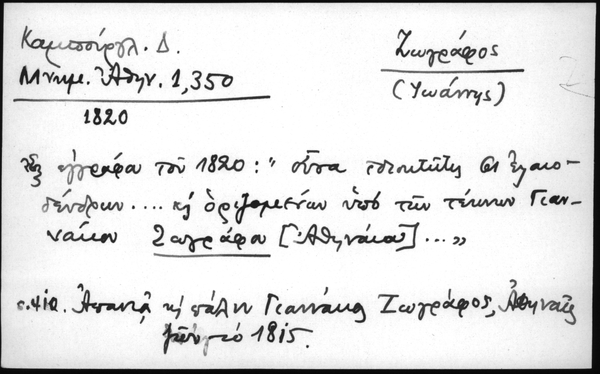 Καμπούρογλ. Δ.
Μνημ. Ἀθην. 1,350
1820
Ζωγράφος
(Ἰωάννης)
ἐγγράφα τοῦ 1820: " οὖσα ἐλαιο-
δένδρων .... κ ὁριζομένων ὑπὸ τῶν τέκνων Γιαν-
νάκου Ζωγράφου [Ἀθηναίου] ... "
Ἀπαντᾷ κ πάλιν Γιαννάκης Ζωγράφος, Ἀθηναῖος
1815.